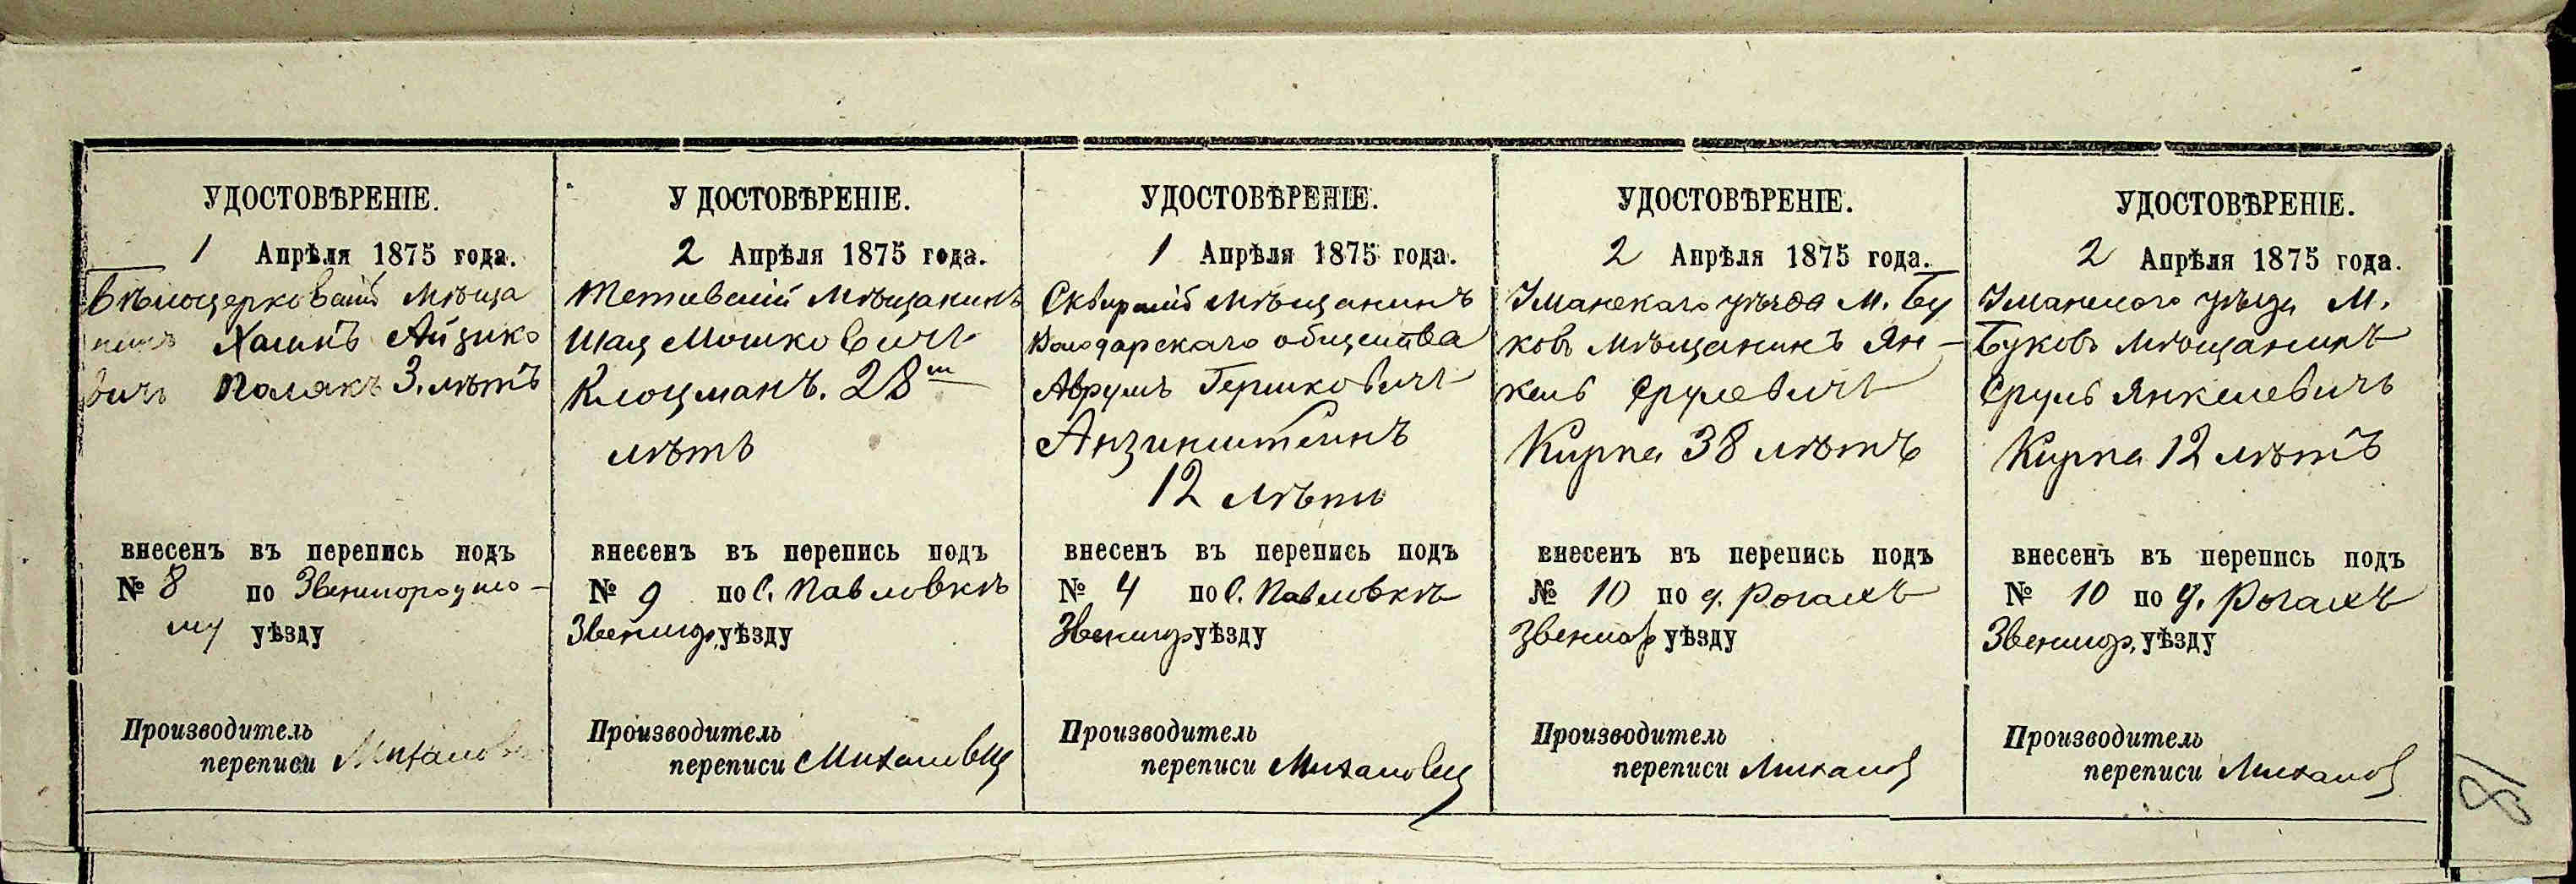 УДОСТОВѢРЕНІЕ.
1 Апрѣля 1875 года.
Бѣлоцерковскій мѣща
нинъ Хаимъ Айзико
вичъ Полякъ 3. лѣтъ
внесенъ въ перепись подъ
№ 8 по Звенигородско-
му уѣзду
Производитель
переписи
УДОСТОВѢРЕНІЕ.
2 Апрѣля 1875 года.
Тетіевскій мѣщанинъ
Шая Мошковичъ
Клоцманъ. 28ми
лѣтъ
внесенъ въ перепись подъ
№ 9 по с. Павловкѣ
Звенигор. уѣзду
Производитель
переписи
УДОСТОВѢРЕНІЕ.
1 Апрѣля 1875 года.
Сквирскій мѣщанинъ
Володарскаго общества
Аврумъ Гершковичъ
Анзинштейнъ
12 лѣтъ
внесенъ въ перепись подъ
№ 4 по с. Павловкѣ
Звенигор уѣзду
Производитель
переписи
УДОСТОВѢРЕНІЕ.
2 Апрѣля 1875 года.
Уманскаго уѣзда м. Бу
ковъ мѣщанинъ Ян-
кель Срулевичъ
Кирпа 38 лѣтъ
внесенъ въ перепись подъ
№ 10 по д. Рогахъ
Звенигор уѣзду
Производитель
переписи
УДОСТОВѢРЕНІЕ.
2 Апрѣля 1875 года.
Уманскаго уѣзда м.
Буковъ мѣщанинъ
Сруль Янкелевичъ
Кирпа 12 лѣтъ
внесенъ въ перепись подъ
№ 10 по д. Рогахъ
Звенигор. уѣзду
Производитель
переписи
18